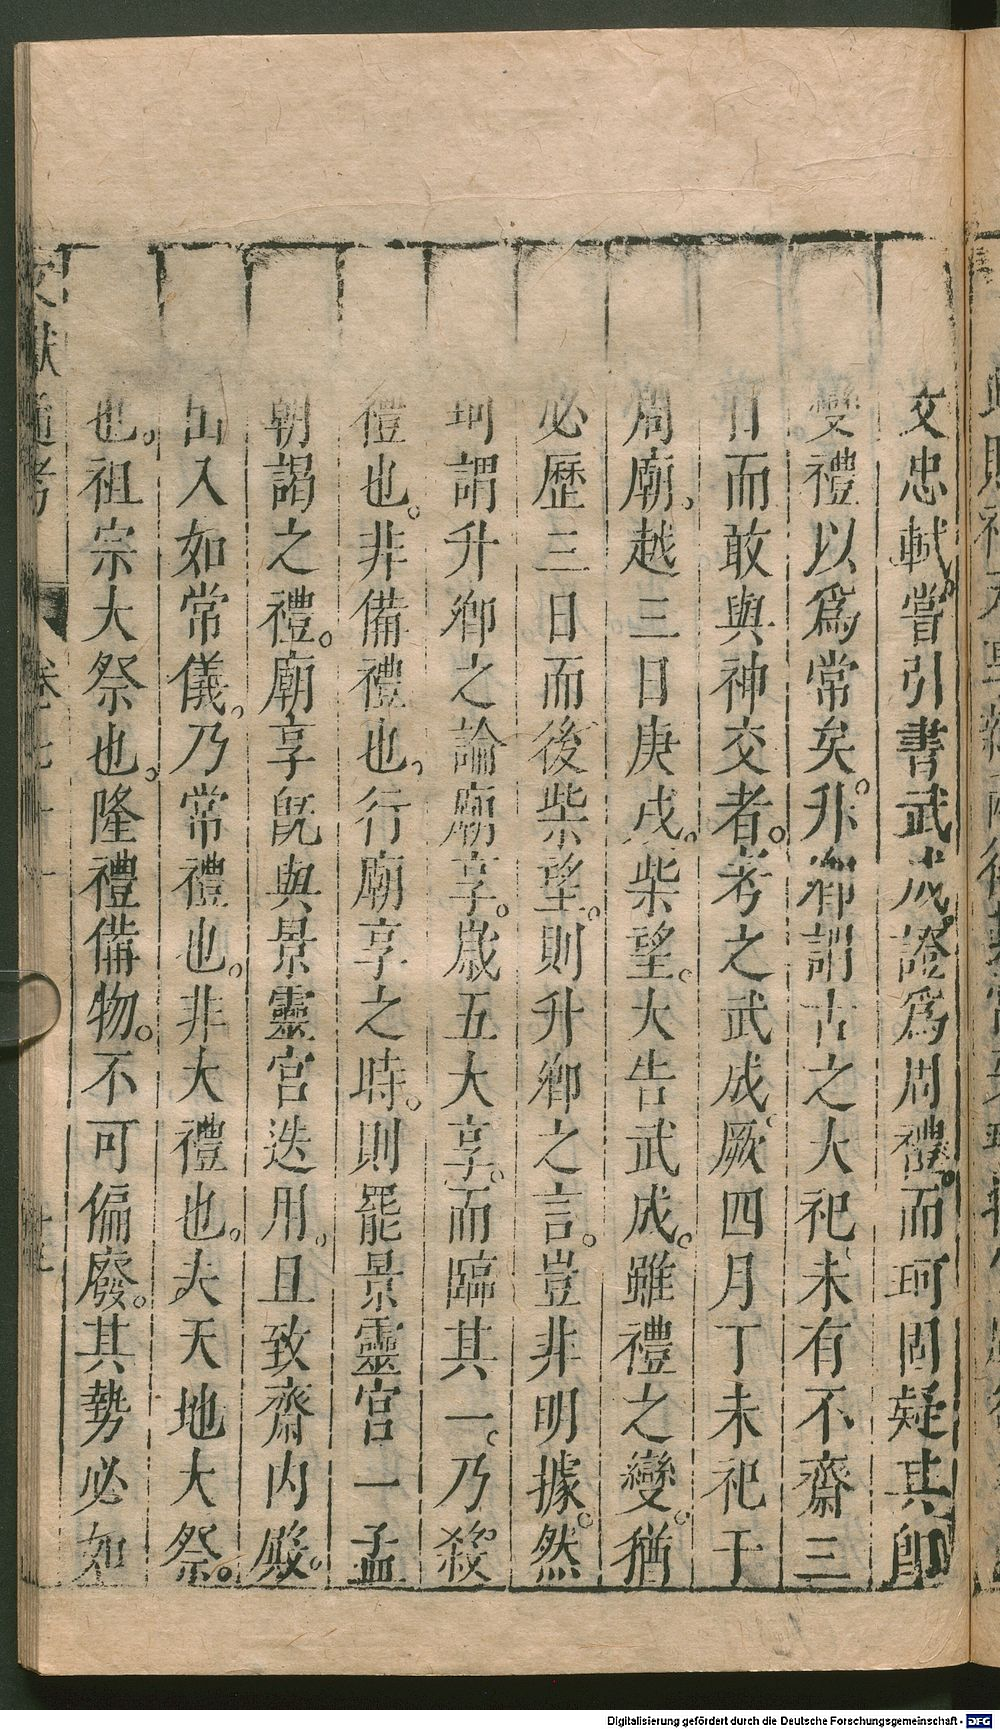 文忠軾。嘗引書武成。證爲周禮。而珂固疑其即
變禮以爲常矣。升卿謂古之大祀、未有不齋三
日而敢與神交者。考之武成。厥四月丁未祀于
周廟。越三日庚戌。柴望。大告武成。雖禮之變。猶
必歷三日而後柴望。則升卿之言。豈非明據。然
珂謂升卿之論廟享。歲五大享。而臨其一。乃殺
禮也。非備禮也。行廟享之時。則罷景靈宮一孟
朝謁之禮。廟享旣與景靈宮迭用。且致齋內殿。
出入如常儀。乃常禮也。非大禮也。夫天地大祭。
也。祖宗大祭也。隆禮備物。不可偏廢。其勢必如
文獻通考 卷七十一
Digitalisierung gefördert durch die Deutsche Forschungsgemeinschaft - DFG